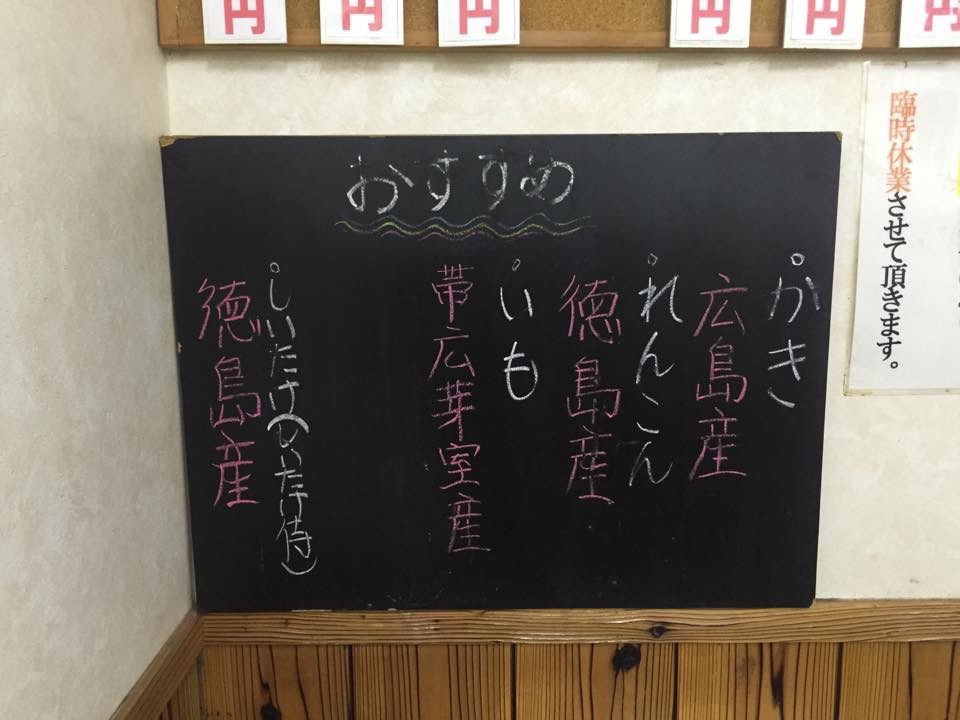 円
円
円
円
円
円
おすすめ
かき
広島産
れんこん
徳島産
いも
帯広芽室産
しいたけ(しいたけ侍)
徳島産
臨時休業させて頂きます。